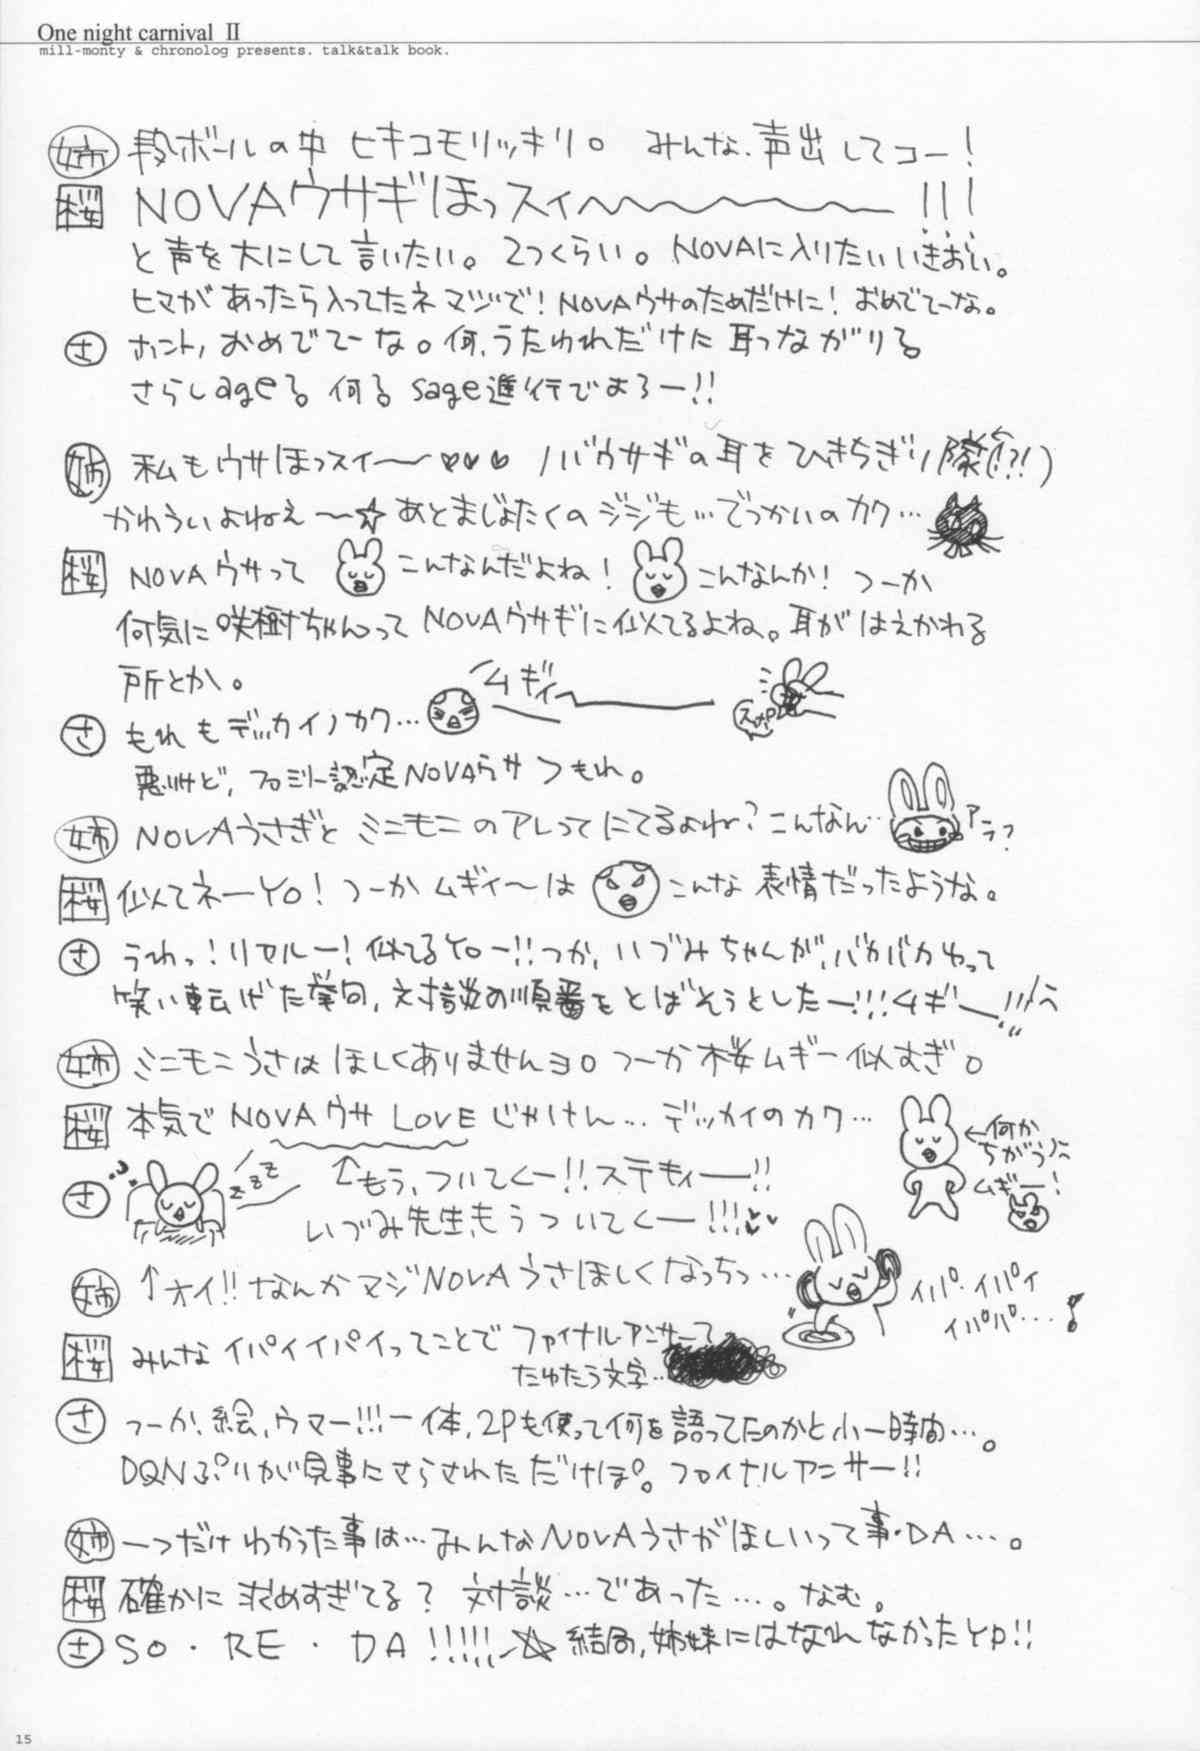 One night carnival Ⅱ
mill-monty & chronolog presents. talk&talk book.
姉 段ボールの中 ヒキコモリッキリ。 みんな、声出してコー!
桜 NOVAウサギほっスィ〜〜〜!!!
と声を大にして言いたい。てっくらい。NOVAに入りたいいきおい。
ヒマがあったら入ってたネ マジで! NOVAウサのためだけに! おめでてーな。
さ ホント、おめでてーな。何、うたわれだけに耳つながりる
さらしageる 何る sage進行でよろー!!
姉 私もウサほっスィ〜♥♥♥ ノバウサギの耳をひきちぎり隊(!?!)
かわういよねぇ〜☆ あとまじょたくのジジも…でっかいのカク…
桜 NOVAウサって こんなんだよね! こんなんか! つーか
何気に咲樹ちゃんって NOVAウサギに似てるよね。耳がはえかわる
所とか。
ムギィ
スッポ
さ もれもデッカイノカク…
悪いけど、ファミリー認定NOVAウサつもれ。
姉 NOVAうさぎと ミニモニのアレってにてるよね? こんなん…
アラ?
桜 似てネーYO! つーか ムギィ〜は こんな 表情だったような。
さ うわっ! リセルー! 似てるYOー!! つか、いづみちゃんが、バカバカやって
笑い転げた挙句、対談の順番をとばそうとしたー!!! ムギー!!!
姉 ミニモニうさはほしくありませんヨ。つーか桜ムギー似すぎ。
桜 本気で NOVAウサ LOVE じゃけん… デッカイのカク…
←何か
ちがう
ムギー!
さ zzz ↑もう、ついてくー!! ステキィー!!
いづみ先生、もうついてくー!!!♥♥
姉 ↑オイ!! なんかマジNOVAうさほしくなっちっ…
イパ・イパイ
イパパ…♪
桜 みんなイパイイパイってことで ファイナルアンサーて
たゆたう文字…
さ つーか、絵、ウマー!!! 一体、2Pも使って何を語ってたのかと小一時間…。
DQNぷりが見事にさらされただけぽ。ファイナルアンサー!!
姉 一つだけわかった事は…みんなNOVAうさがほしいって事・DA…。
桜 確かに 求めすぎてる? 対談…であった…。なむ。
さ SO・RE・DA!!!!!☆ 結局、姉妹にはなれなかったYP!!
15